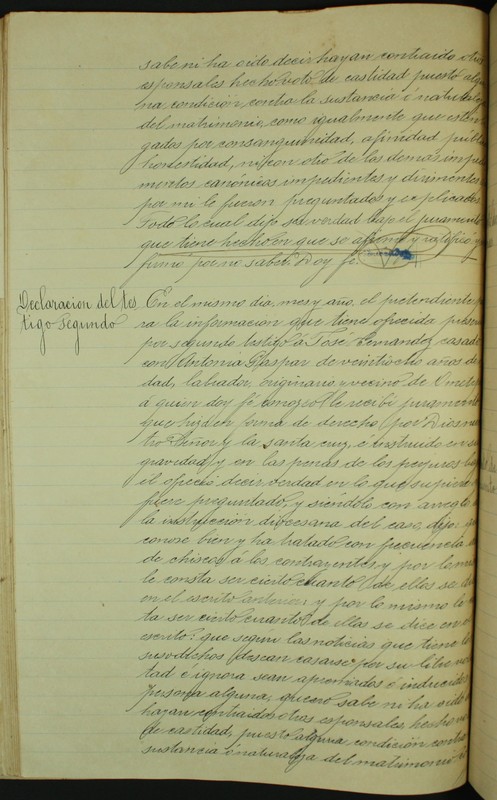 sabe ni ha oido decir hayan contraido otros
esponsales, hecho voto de castidad, puesto algu
na condición contra la sustancia ó naturaleza
del matrimonio, como igualmente que esten
gados por consanguinidad, afinidad públi
honestidad, ni con otro de los demas impe
mentos canónicos impedientes y dirimentes
por mi le fueron preguntados y esplicados
Todo lo cual dijo ser verdad bajo el juramento
que tiene hecho en que se afirmó y ratificó, y
firmó por no saber. Doy fé.
Declaracion del tes
tigo segundo
En el mismo dia, mes y año, el pretendiente p
ra la información que tiene ofrecida presen
por segundo testigo á José Fernandez casado
con Antonia Gaspar de veintiocho años de
dad, labrador, originario y vecino de
á quien doy fé conozco le recibí juramento
que hizo en forma de derecho por Dios nues
tro Señor y la santa cruz, é instruido en su
gravedad y en las penas de los perjuros ba
él ofreció decir verdad en lo que supiere
fuere preguntado, y siéndolo con arreglo
la instrucción diocesana del caso, dijo: que
conoce bien y ha tratado con frecuencia de
de chiscos á los contrayentes y por lo mis
le consta ser cierto cuanto de ellos se di
en el escrito anterior: y por lo mismo le
ta ser cierto cuanto de ellas se dice en el
escrito: que segun las noticias que tiene los
susodichos desean casarse por su libre volun
tad é ignora sean apremiados é inducidos
persona alguna, que no sabe ni ha oido
hayan contraidos otras esponsales, hecho voto
de castidad, puesto alguna condición contra
sustancia ó naturaleza del matrimonio